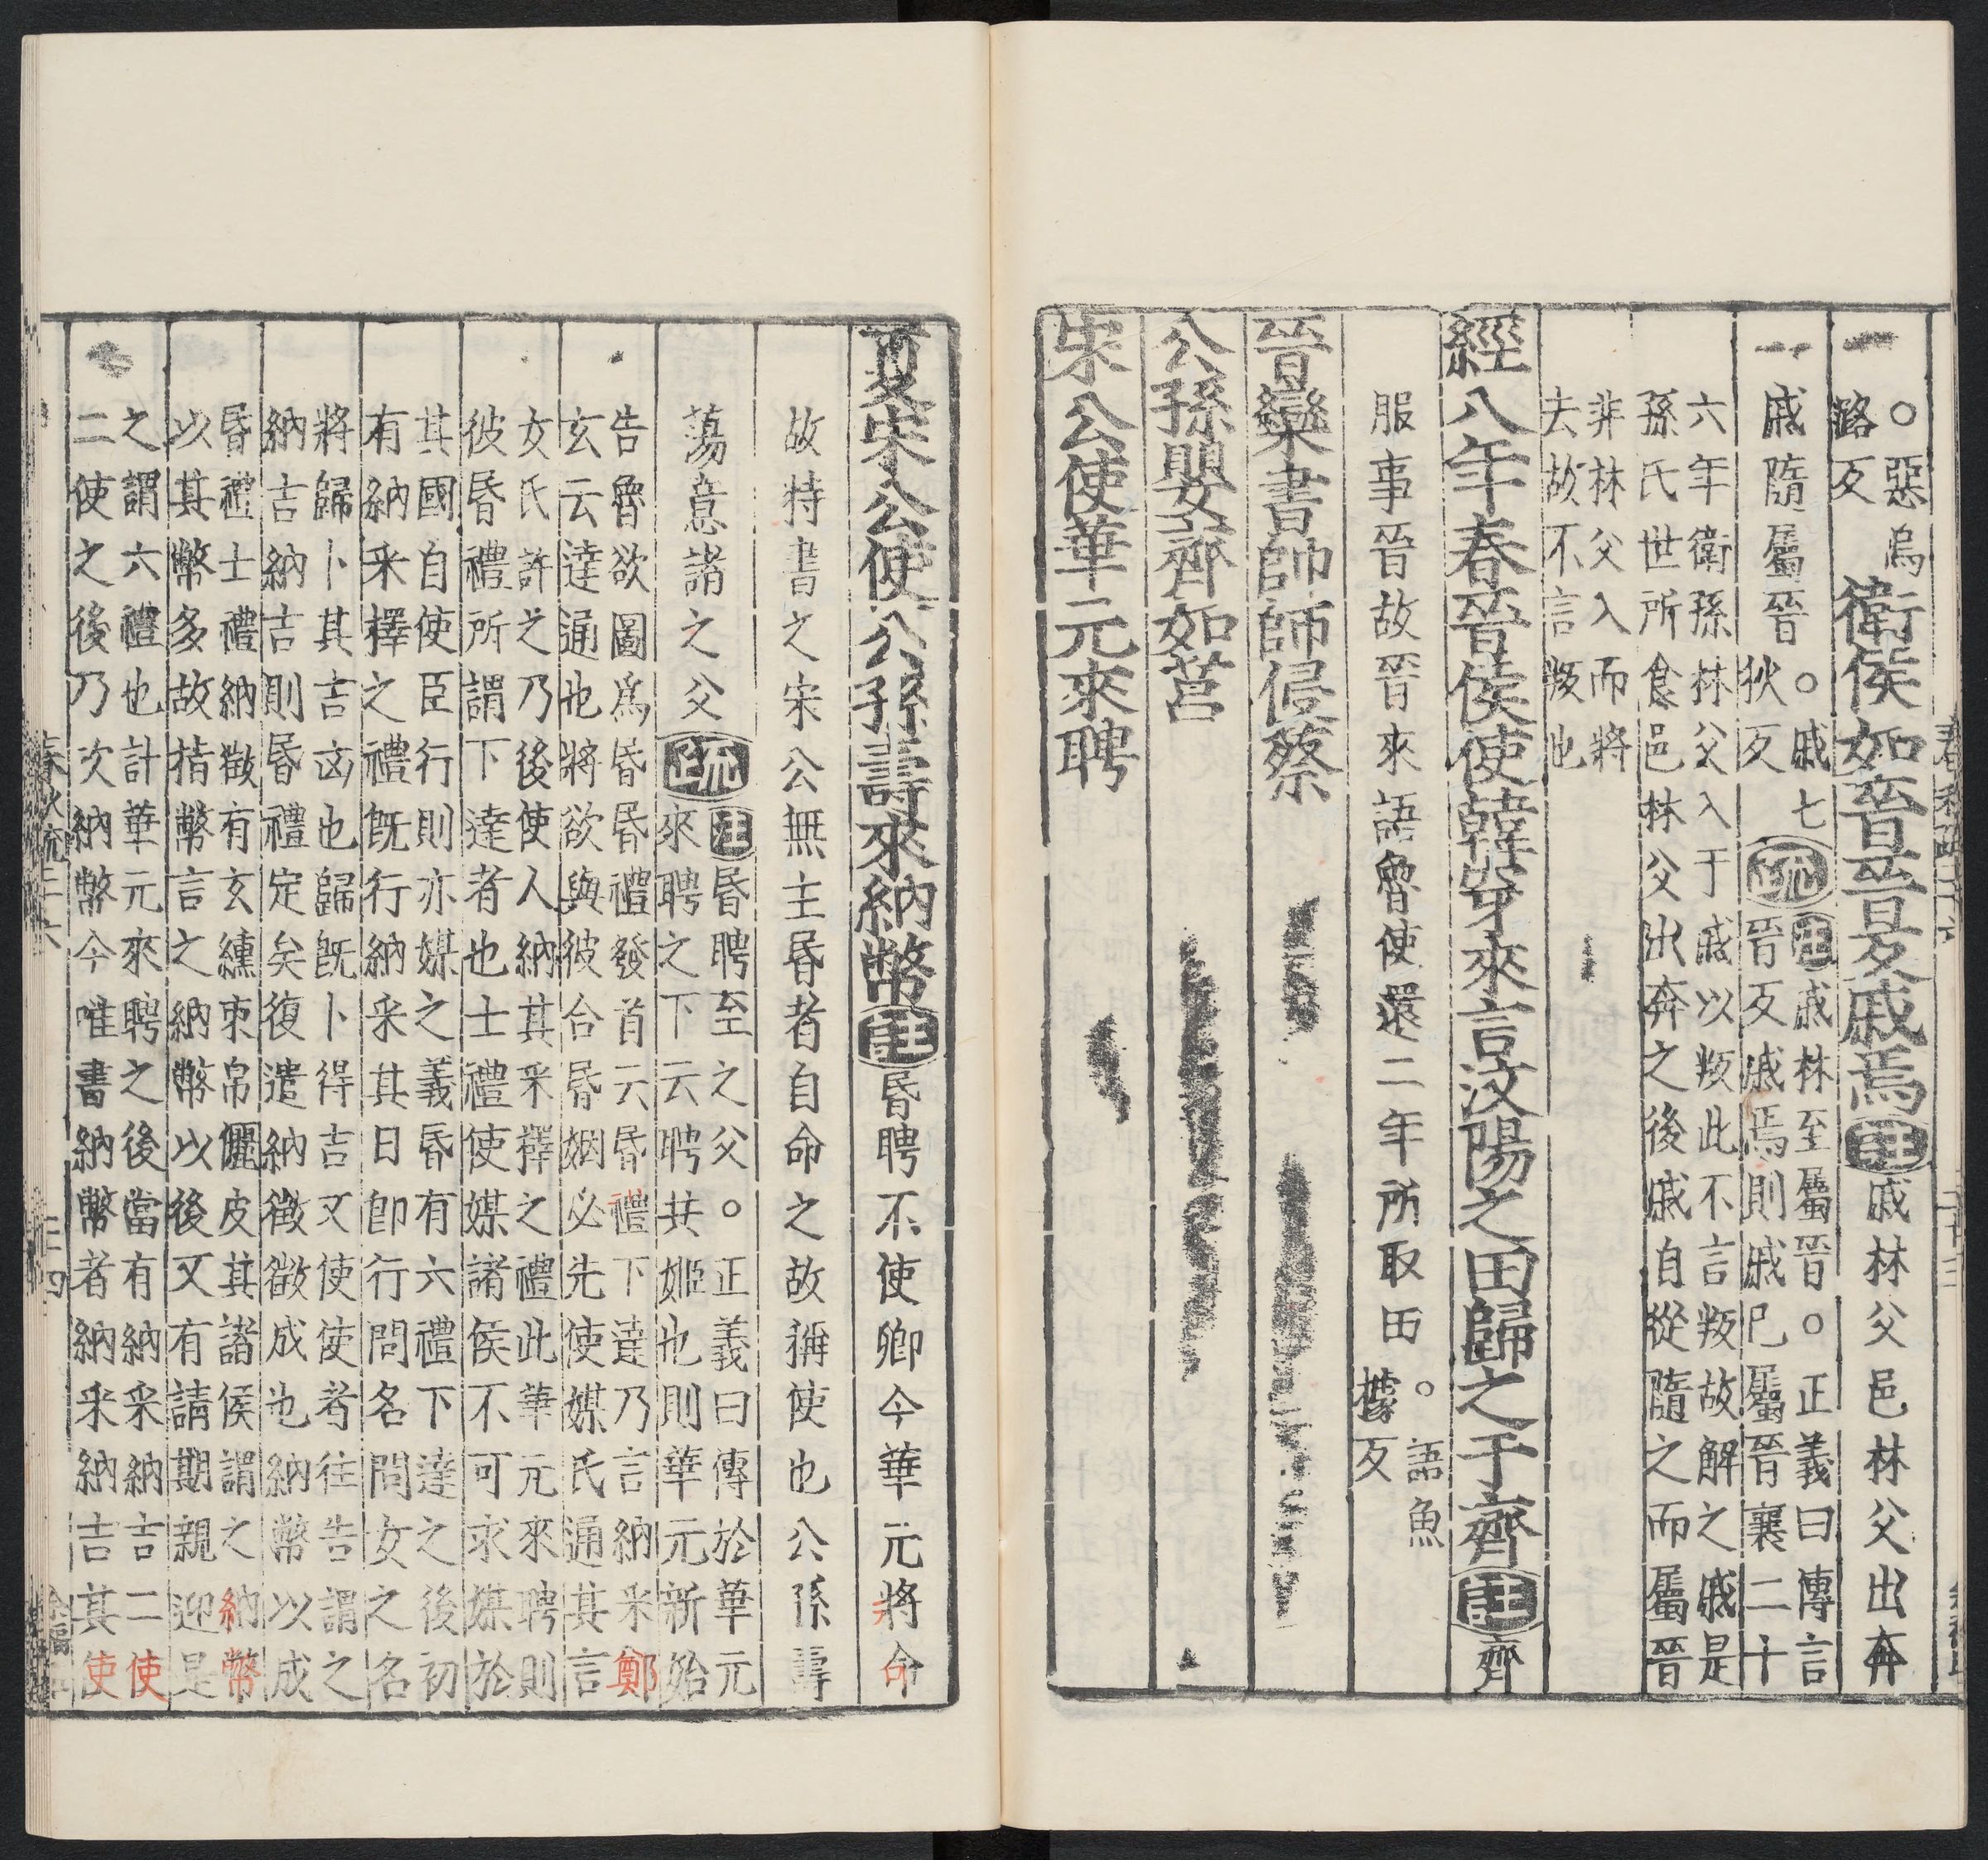 ○惡烏
路反
衛侯如晉晉反戚焉註戚林父邑林父出奔
戚隨屬晉
○戚七
狄反
疏註戚林至屬晉○正義曰傳言
晉反戚焉則戚已屬晉襄二十
六年衛孫林父入于戚以叛此不言叛故解之戚是
孫氏世所食邑林父出奔之後戚自從隨之而屬晉
非林父入而將
去故不言叛也
經八年春晉侯使韓穿來言汶陽之田歸之于齊註齊
服事晉故晉來語魯使還二年所取田
○語魚
據反
晉欒書帥師侵蔡
公孫嬰齊如莒
宋公使華元來聘
夏宋公使公孫壽來納幣註昏聘不使卿今華元將命
故特書之宋公無主昏者自命之故稱使也公孫壽
蕩意諸之父疏註昏聘至之父○正義曰傳於華元
來聘之下云聘共姬也則華元新始
告魯欲圖爲昏昏禮發首云昏禮下達乃言納采鄭
玄云達通也將欲與彼合昏姻必先使媒氏通其言
女氏許之乃後使人納其采擇之禮此華元來聘則
彼昏禮所謂下達者也士禮使媒諸侯不可求媒於
其國自使臣行則亦媒之義昏有六禮下達之後初
有納采擇之禮既行納采其日即行問名問女之名
將歸卜其吉凶也歸既卜得吉又使使者往告謂之
納吉納吉則昏禮定矣復遣納徵徵成也納幣以成
昏禮士禮納徵有玄纁束帛儷皮其諸侯謂之納幣
以其幣多故指幣言之納幣以後又有請期親迎是
之謂六禮也計華元來聘之後當有納采納吉二使
二使之後乃次納幣今唯書納幣者納采納吉其使
春秋疏二十六
二十四